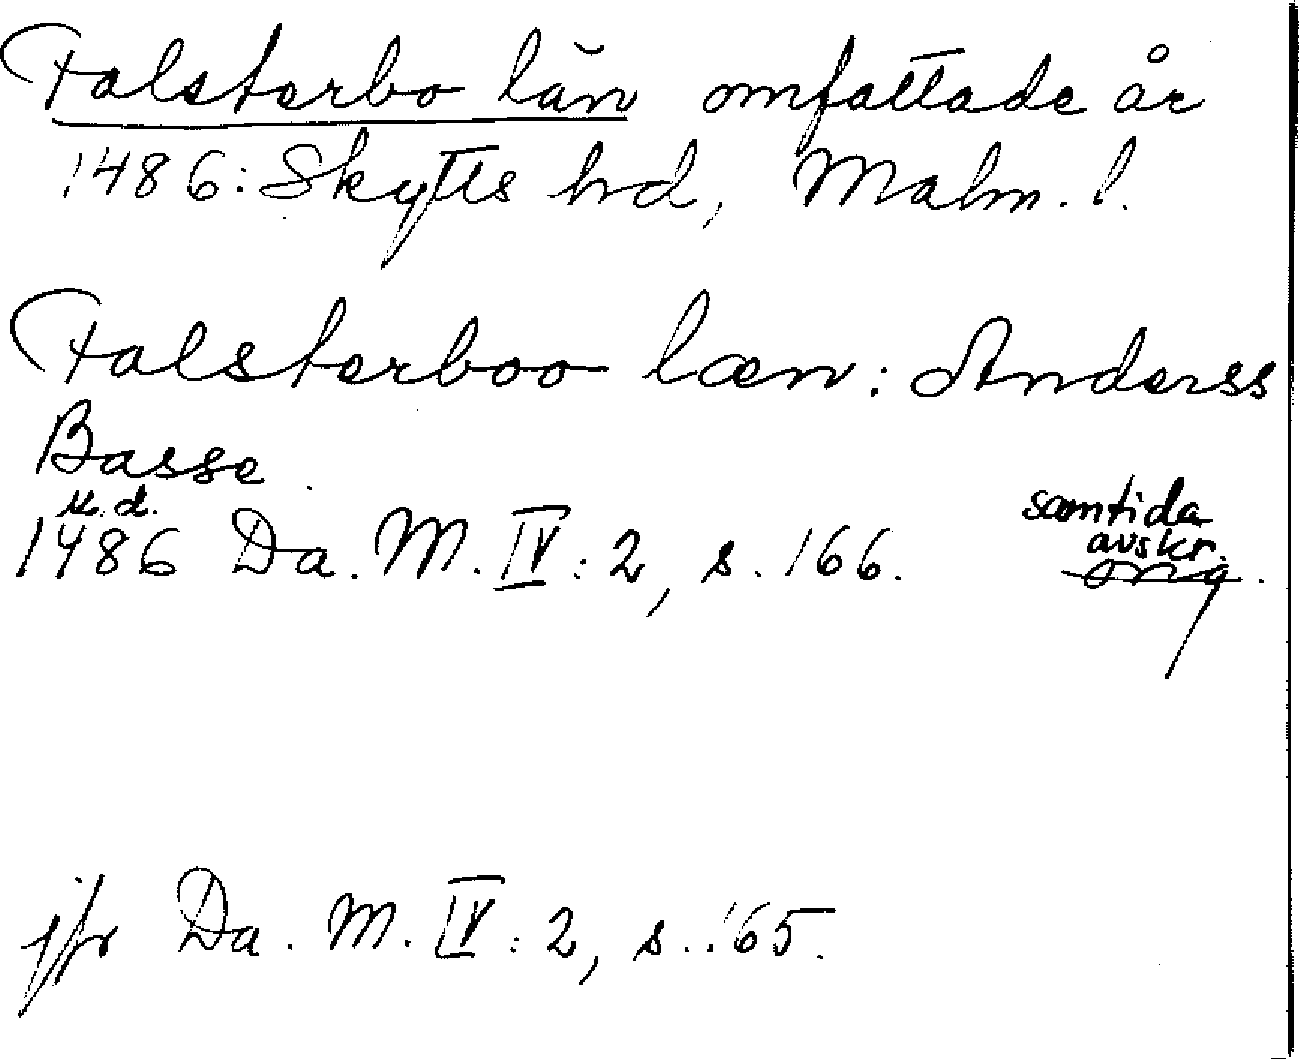 Falsterbo län omfattade år
1486: Skytts hd, Malm. l.
Falsterboo læn: Anderss
Basse.
u.d.
1486 Da. M. IV: 2, s. 166.
samtida
avskr.
orig.
jfr Da. M. IV: 2, s. 165.